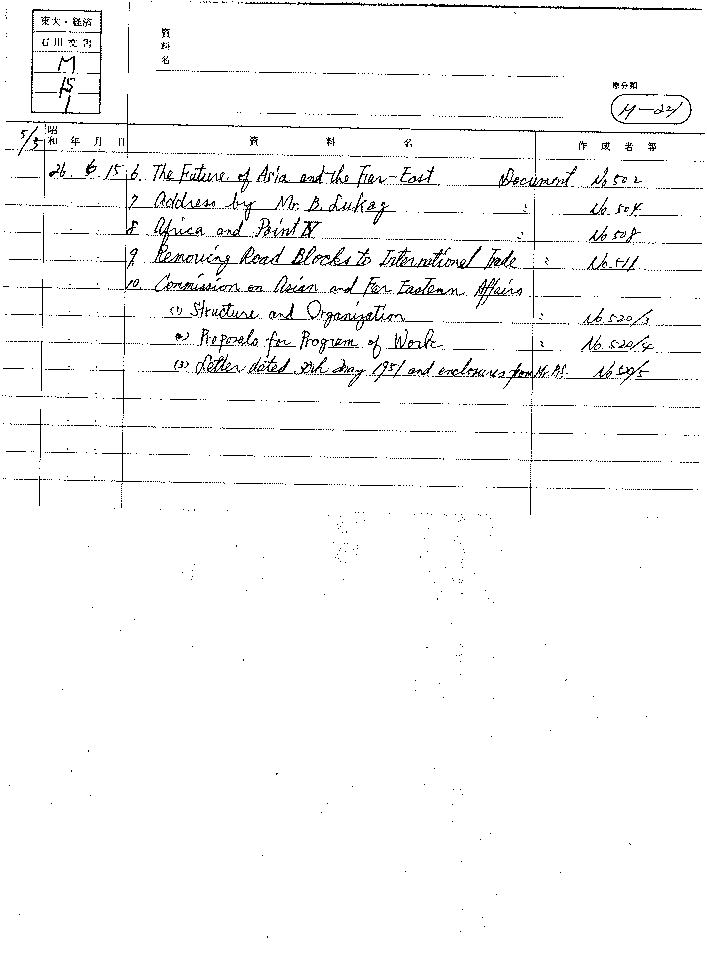 東大・経済
石川文書
M
15
1
資料名
原分類
M-22/
5/3 昭和 年 月 日 資 料 名 作成者等
26. 6. 15 6. The Future of Asia and the Far-East Document No 502
7 Address by Mr. B. Lukaz 〃 No 504
8 Africa and Point IV 〃 No 508
9. Removing Road Blocks to International Trade 〃 No.511
10. Commission on Asian and Far Eastern Affairs
(1) Structure and Organization 〃 No 520/3
(2) Proposals for Program of Work 〃 No 520/4
(3) Letter dated May 1951 and enclosures from Mr. No 520/5